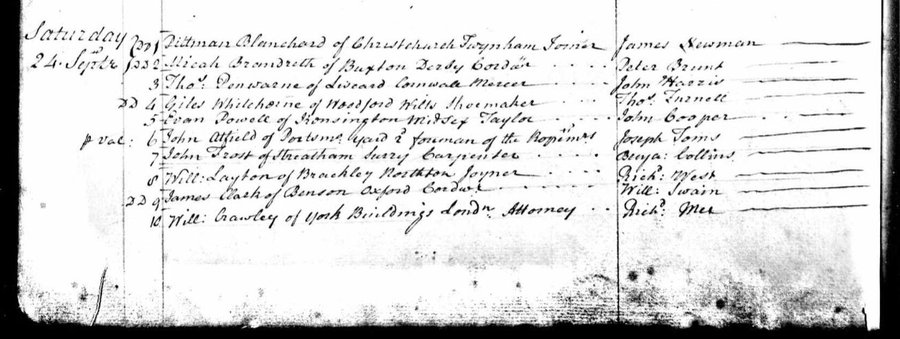 Saturday DD 1 Pittman Blanchard of Christchurch Twynham Joiner James Newman
24. Septr DD 2 Micah Brandreth of Buxton Derby Cordwr Peter Brunt
3 Thos. Penwarne of Liscard Cornwall Mercer John Harris
DD 4 Giles Whitehorne of Woodford Wilts Shoemaker Thos. Turnell
5 Evan Powell of Kensington Midsex Taylor John Cooper
p val: 6 John Atfield of Portsmo. Yard 2d foreman of the Ropemrs Joseph Toms
7 John Frost of Streatham Surry Carpenter Benja: Collins
8 Will: Layton of Brackley Northton Joyner Richd: West
DD 9 James Clark of Benson Oxford Cordwr Will: Swain
10 Will: Crawley of York Buildings Londn. Attorney Richd: Mee